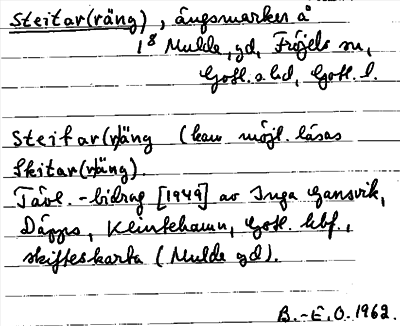 Steitar(räng), ängsmarker å
1⁸ Mulde, gd, Fröjels sn,
Gotl. s hd, Gotl. l.
Steitar(r)äng (kan möjl. läsas
Skitar(r)äng).
Tävl.-bidrag [1949] av Inga Gansvik,
Däpps, Klintehamn, Gotl. hbf.,
skifteskarta (Mulde gd).
B.-E.O. 1962.